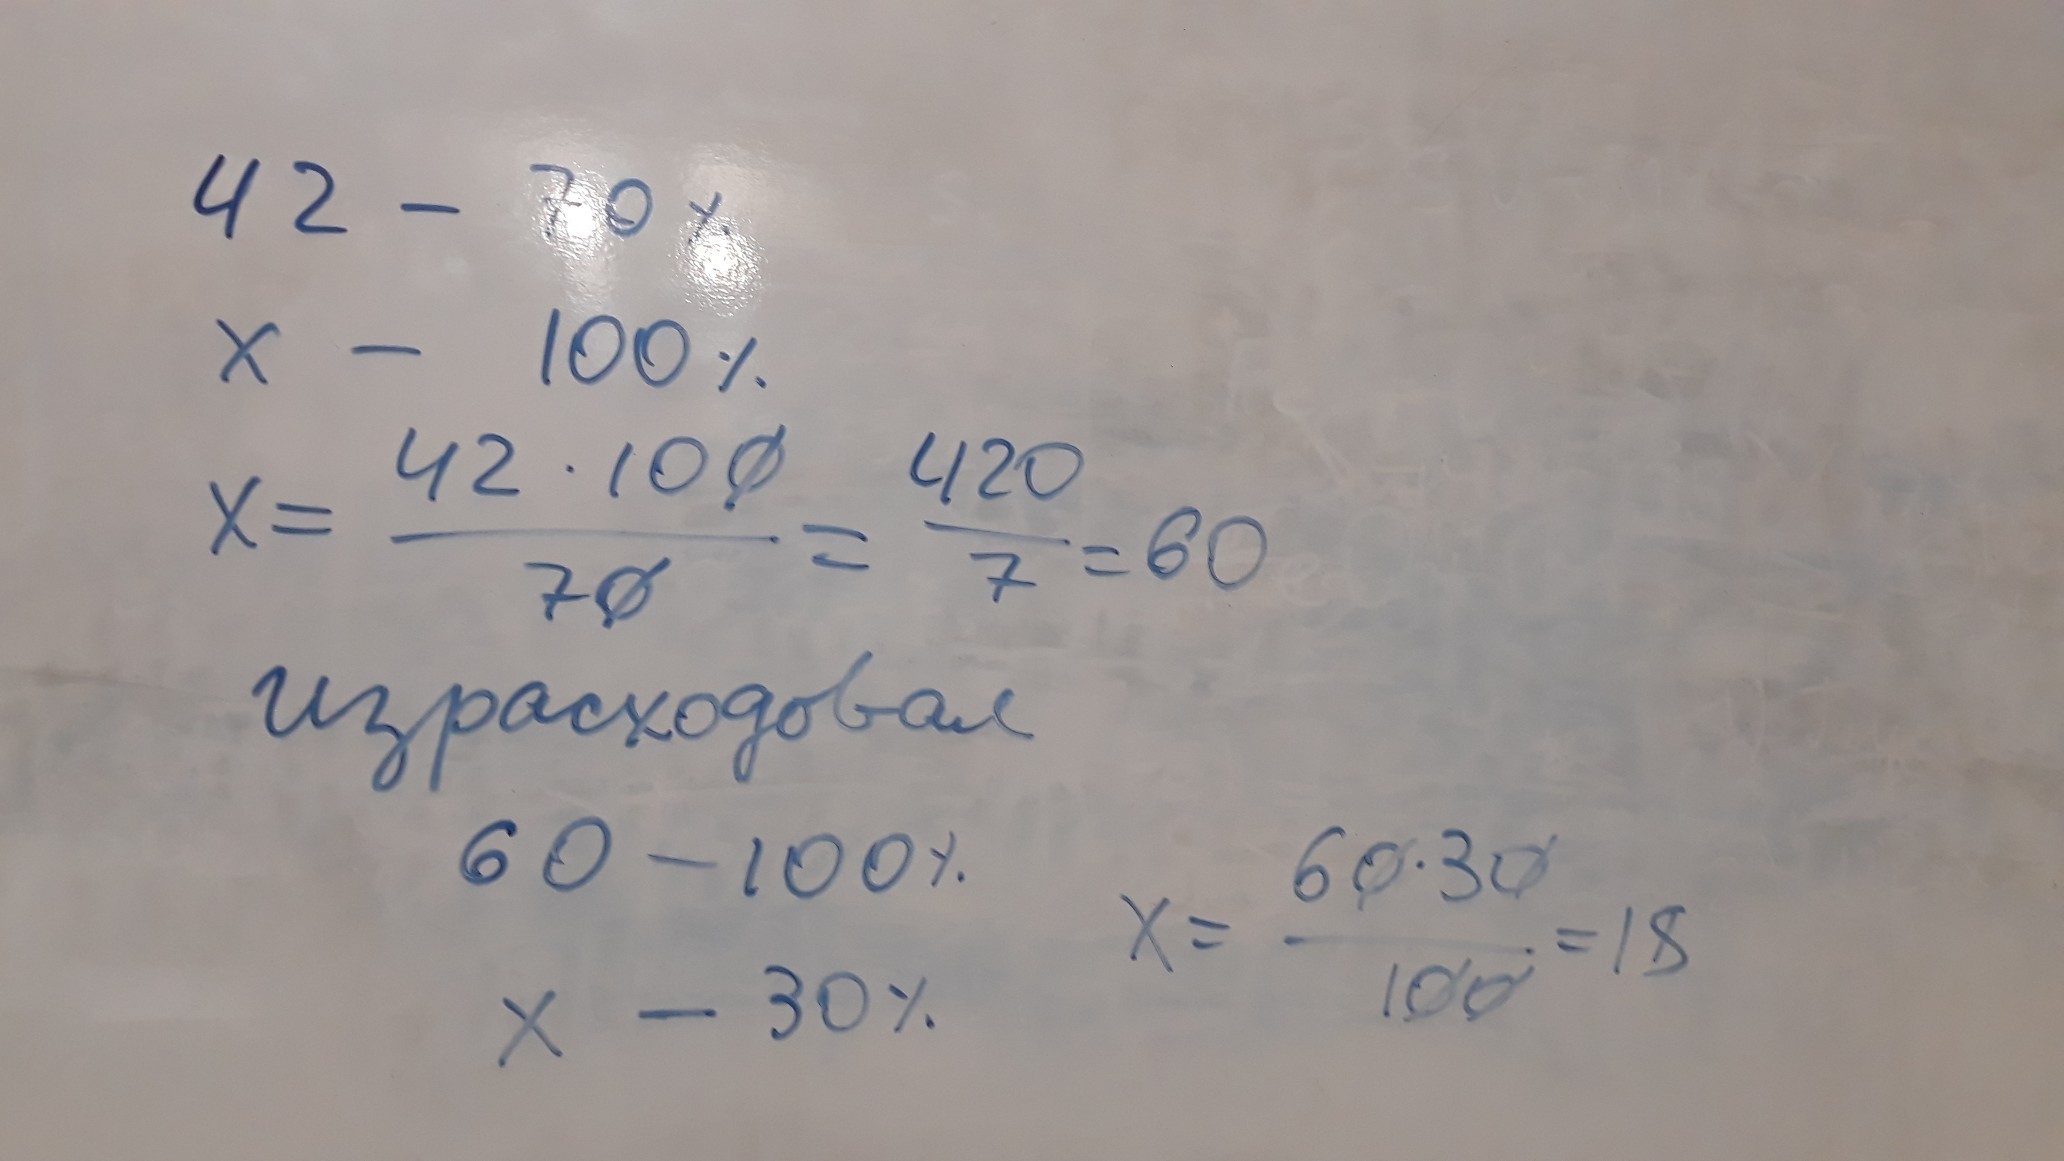 42 – 70%
x – 100%
x = 42 · 100 / 70 = 420 / 7 = 60
израсходовал
60 – 100%
x – 30%
x = 60 · 30 / 100 = 18